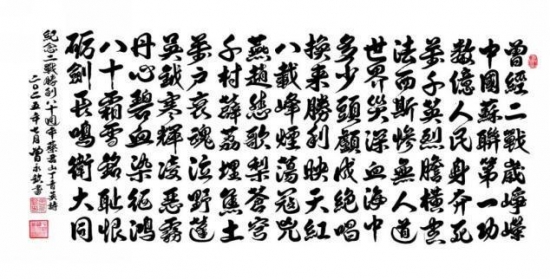 曾經二戰歲崢嶸
中國蘇聯第一功
數億人民身奔死
萬千英烈膽橫
法西斯慘無人道
世界災深血海中
多少頭顱成絕唱
換來勝利映天紅
八載烽煙蕩寇兇
燕趙悲歌裂蒼穹
千村薜荔埋焦土
萬戶哀魂泣野蓬
吳鉞寒輝凌惡霧
丹心碧血染征鴻
八十霜雪銘恥恨
礪劍長鳴衛大同
紀念二戰勝利八十週年蔡君山丁青英詩
二〇二五年七月曾永書